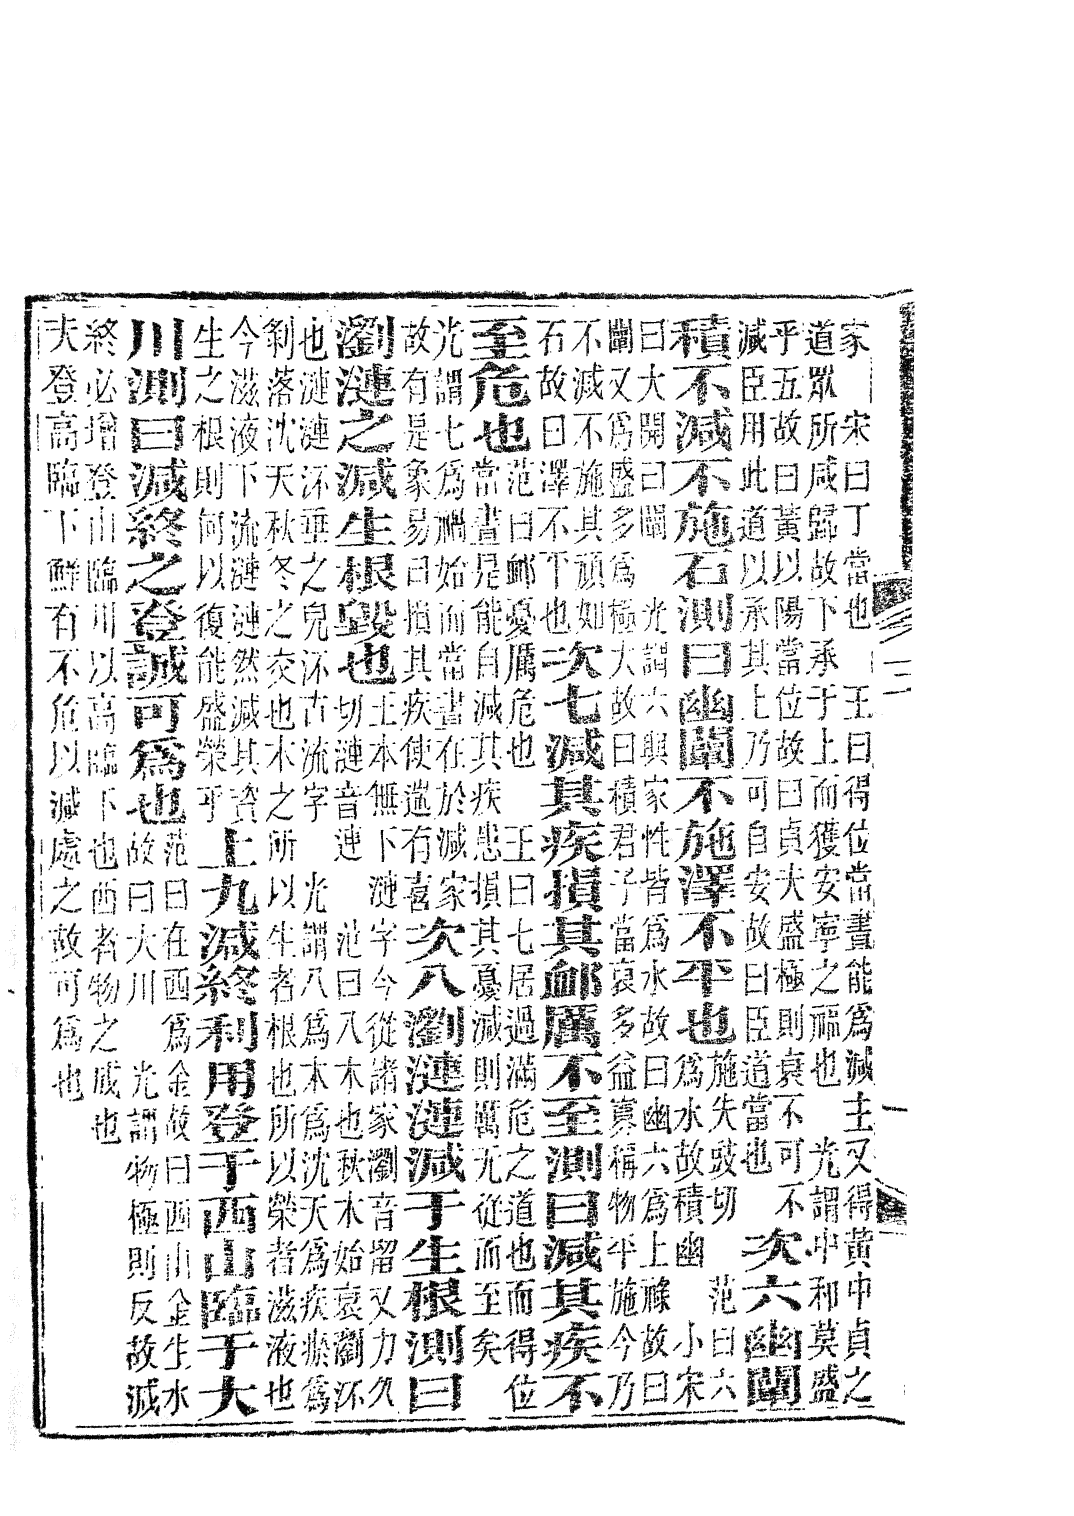 家　宋曰丁當也　王曰得位當晝能爲減主又得黃中貞之
道眾所咸歸故下承于上而獲安寧之福也　光謂中和莫盛
乎五故曰黃以陽當位故曰貞大盛極則衰不可不
減臣用此道以承其上乃可自安故曰臣道當也
次六幽闡
積不減不施石測曰幽闡不施澤不平也
施失豉切　范曰六
爲水故積幽　小宋
曰大開曰闡　光謂六與家性皆爲水故曰幽六爲上祿故曰
闡又爲盛多爲極大故曰積君子當裒多益寡稱物平施今乃
不減不施其頑如
石故曰澤不平也
次七減其疾損其卹厲不至測曰減其疾不
至危也
范曰卹憂厲危也　王曰七居過滿危之道也而得位
當晝是能自減其疾患損其憂減則厲无從而至矣
光謂七爲禍始而當晝在於減家
故有是象易曰損其疾使遄有喜
次八瀏漣漣減于生根測曰
瀏漣之減生根毀也
王本無下漣字今從諸家瀏音留又力久
切漣音連　范曰八木也秋木始衰瀏沠
也漣漣沠垂之皃沠古流字　光謂八爲木爲沈天爲疾瘀爲
剝落沈天秋冬之交也木之所以生者根也所以榮者滋液也
今滋液下流漣漣然減其資
生之根則何以復能盛榮乎
上九減終利用登于西山臨于大
川測曰減終之登誠可爲也
范曰在西爲金故曰西山金生水
故曰大川　光謂物極則反故減
終必增登山臨川以高臨下也西者物之成也
夫登高臨下鮮有不危以減處之故可爲也